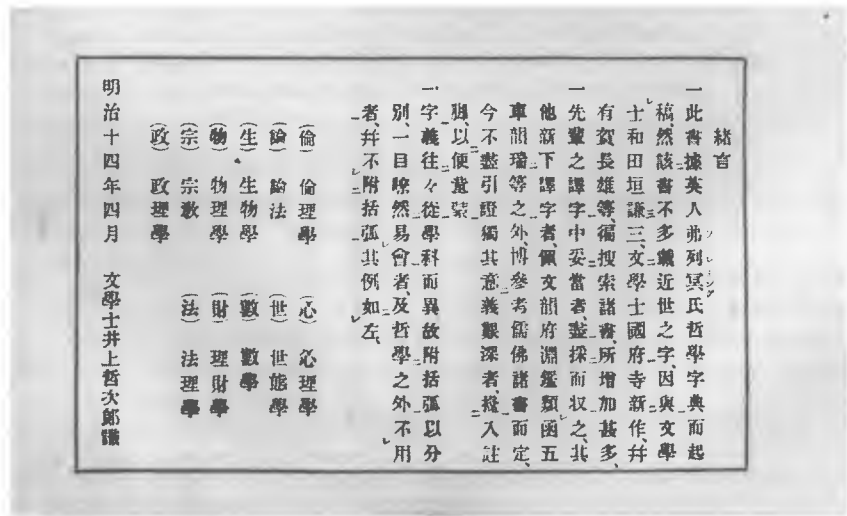 緒言
一此書據英人弗列冥氏哲學字典而起
フレミング
稿、然該書不多載近世之字、因與文學
士和田垣謙三、文學士國府寺新作、幷
有賀長雄等、徧搜索諸書、所增加甚多、
一先輩之譯字中妥當者、盡採而収之、其
他新下譯字者、佩文韻府淵鑑類函五
車韻瑞等之外、博參考儒佛諸書而定、
今不盡引證、獨其意義艱深者、挼入註
脚、以便童蒙
一字義往々從學科而異、故附括弧以分
別、一目瞭然易會者、及哲學之外不用
者、幷不附括弧、其例如左、
(倫) 倫理學 (心) 心理學
(論) 論法 (世) 世態學
(生) 生物學 (數) 數學
(物) 物理學 (財) 理財學
(宗) 宗敎 (法) 法理學
(政) 政理學
明治十四年四月 文學士井上哲次郎識